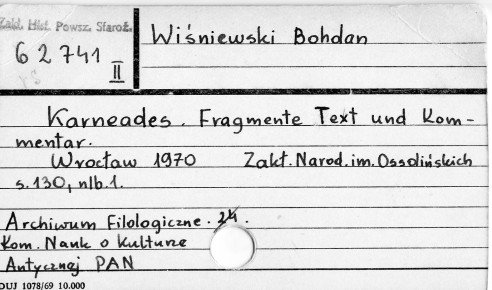 Zakł. Hist. Powsz. Staroż.
62741
II
Wiśniewski Bohdan
Karneades. Fragmente Text und Kom-
mentar.
Wrocław 1970 Zakł. Narod. im. Ossolińskich
s. 130, nlb. 1.
Archiwum Filologiczne. 24.
Kom. Nauk o Kulturze
Antycznej PAN
DUJ 1078/69 10.000